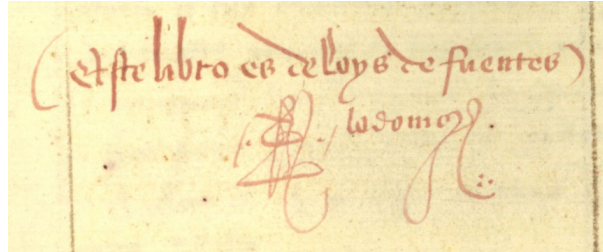 (Este libro es de loys de fuentes)